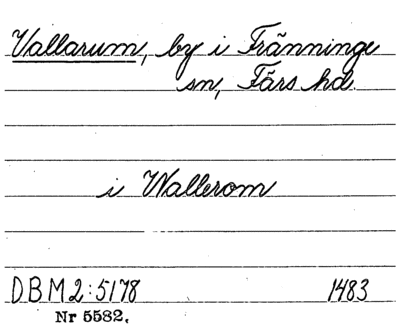 Vallarum, by i Tränninge
sn, Färs hd.
i Wallerom
DBM2:5178 1483
Nr 5582.